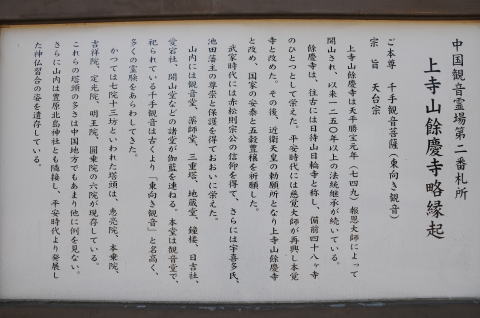 中国観音霊場第二番札所
上寺山餘慶寺略縁起
ご本尊　千手観音菩薩(東向き観音)
宗　旨　天台宗
上寺山餘慶寺は天平勝宝元年(七四九)報恩大師によって
開山され、以来一二五〇年以上の法統継承が続いている。
餘慶寺は、往古には日待山日輪寺と称し、備前四十八ヶ寺
のひとつとして栄えた。平安時代には慈覚大師が再興し本覚
寺と改めた。その後、近衛天皇の勅願所となり上寺山餘慶寺
と改め、国家の安泰と五穀豊穣を祈願した。
武家時代には赤松則宗公の信仰を得て、さらには宇喜多氏、
池田藩主の尊崇と保護を得ておおいに栄えた。
山内には観音堂、薬師堂、三重塔、地蔵堂、鐘楼、日吉社、
愛宕社、開山堂などの諸堂が伽藍を連ねる。本堂は観音堂で、
祀られている千手観音は古くより「東向き観音」と名高く、
多くの霊験をあらわしてきた。
かつては七院十三坊といわれた塔頭は、恵亮院、本乗院、
吉祥院、定光院、明王院、圓乗院の六院が現存している。
これらの塔頭の多さは中国地方でもあまり他に例を見ない。
さらに山内は豊原北島神社とも隣接し、平安時代より発展し
た神仏習合の姿を遺存している。